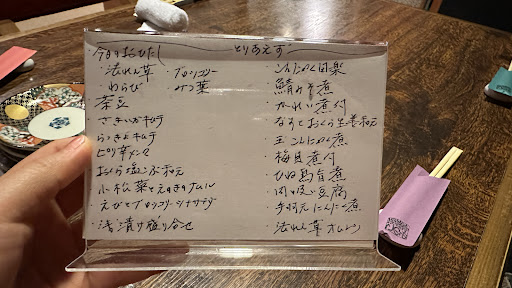 今日のおひたし
・法れん草 ・ブロッコリー
・わらび ・みつ葉
・さきいかキムチ
・らっきょキムチ
・ピリ辛メンマ
・おくら塩こぶ和え
・小松菜とえのきナムル
・えびとブロッコリーツナサラダ
・浅漬け盛り合せ
とりあえず
・こんにゃく田楽
・鯖みそ煮
・かれい煮付
・なすとおくら生姜和え
・玉こんにゃく煮
・梅貝煮付
・肉吸い豆腐
・手羽元にんにく煮
・法れん草オムレツ